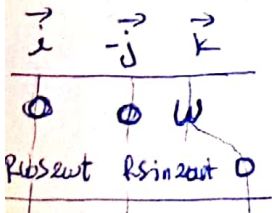 i⃗ -j⃗ k⃗
0 0 ω
Rcos2ωt Rsin2ωt 0